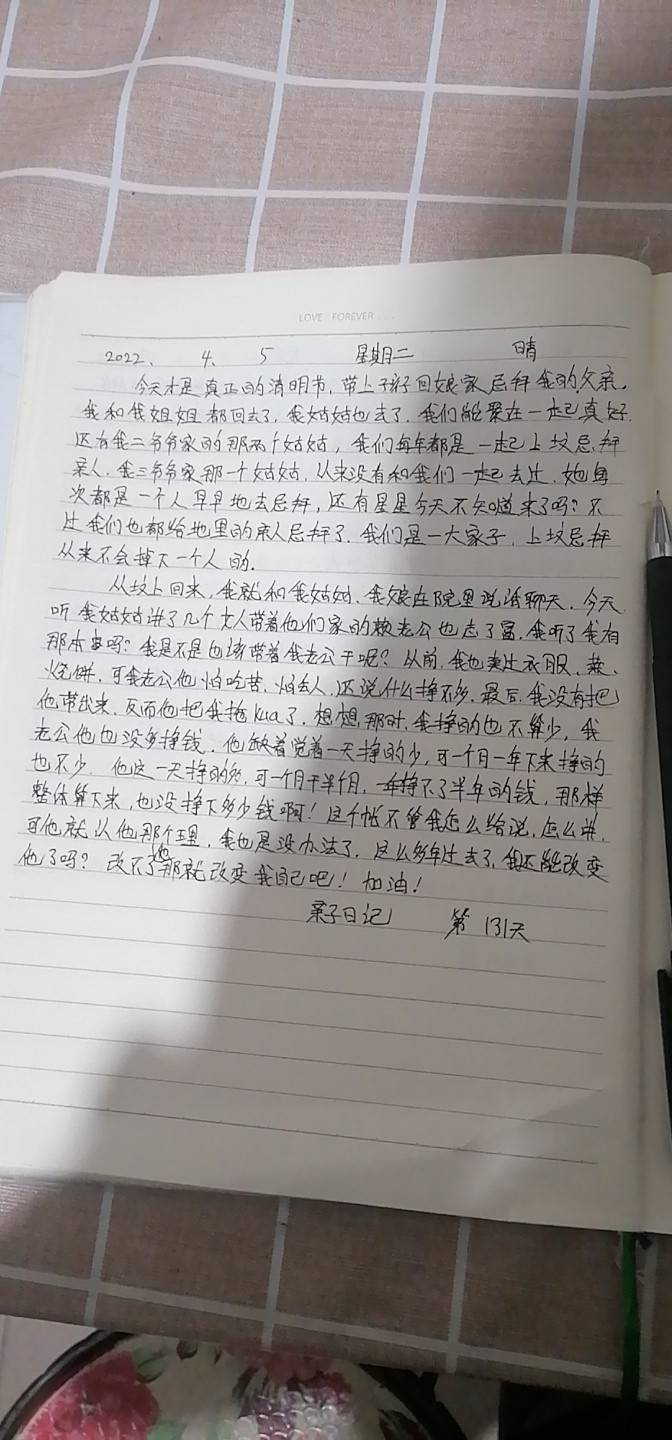 LOVE FOREVER...
2022、 4、 5 星期二 晴
今天才是真正的清明节，带上孩子回娘家忌拜我的父亲。
我和我姐姐都回去了，我姑姑也去了，我们能聚在一起真好
还有我二爷爷家的那两个姑姑，我们每年都是一起上坟忌拜
亲人，我三爷爷家那一个姑姑，从来没有和我们一起去过，她每
次都是一个人早早地去忌拜，还有星星今天不知道来了吗？不
过我们也都给地里的亲人忌拜了，我们是一大家子，上坟忌拜
从来不会掉下一个人的。
从坟上回来，我就和我姑姑、我娘在院里说话聊天，今天
听我姑姑讲了几个女人带着他们家的赖老公也走了富，我听了我有
那本事吗？我是不是也该带着我老公干呢？从前，我也卖过衣服、煮、
火烧饼，可我老公他怕吃苦、怕去人，还说什么挣不多，最后，我没有把
他带出来，反而他把我拖kua了，想想，那时，我挣的也不算少，我
老公他也没多挣钱，他就着觉着一天挣的少，可一个月一年下来挣的
也不少，他这一天挣的多，可一个月干半个月，一年挣不了半年的钱，那样
整体算下来，也没挣下多少钱啊！这个帐不管我怎么给说，怎么讲，
可他就认他那个理，我也是没办法了，这么多年过去了，我还能改变
他了吗？改不了他那就改变我自己吧！加油！
亲子日记 第131天